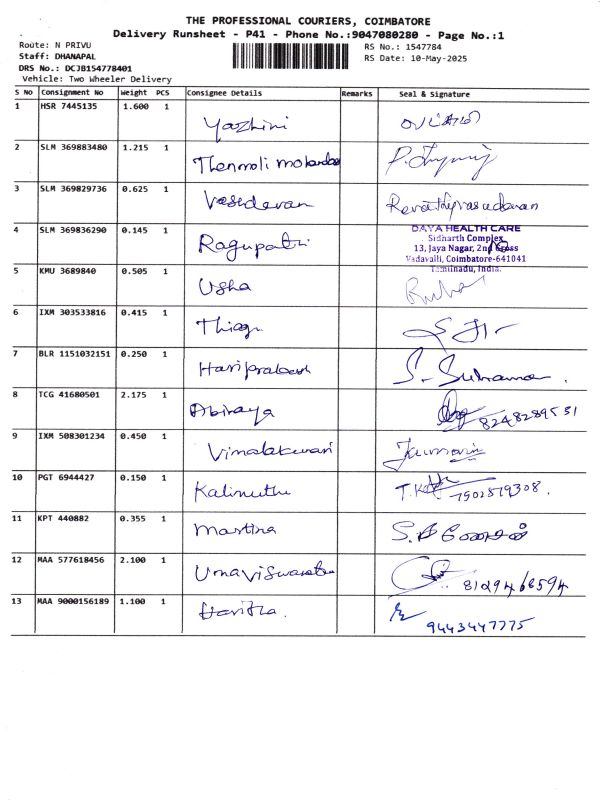 THE PROFESSIONAL COURIERS, COIMBATORE
Delivery Runsheet - P41 - Phone No.:9047080280 - Page No.:1
Route: N PRIVU
RS No.: 1547784
Staff: DHANAPAL
RS Date: 10-May-2025
DRS No.: DCJB154778401
Vehicle: Two Wheeler Delivery
S No Consignment No Weight PCS Consignee Details Remarks Seal & Signature
1 HSR 7445135 1.600 1 Yazhini
2 SLM 369883480 1.215 1 Thenmoli
3 SLM 369829736 0.625 1 Vasedevan Revathyvasudevan
4 SLM 369836290 0.145 1 Ragupatri
DAYA HEALTH CARE
Sidharth Complex,
13, Jaya Nagar, 2nd Cross
Vadavalli, Coimbatore-641041
Tamilnadu, India.
5 KMU 3689840 0.505 1 Usha
6 IXM 303533816 0.415 1 Thiagu
7 BLR 1151032151 0.250 1 Hariprakash
8 TCG 41680501 2.175 1 Abiraya 8248289531
9 IXM 508301234 0.450 1 Vimalakumari
10 PGT 6944427 0.150 1 Kalimuthu 7502879308.
11 KPT 440882 0.355 1 Martina
12 MAA 577618456 2.100 1 8129466594
13 MAA 9000156189 1.100 1 Haritra. 9443447775